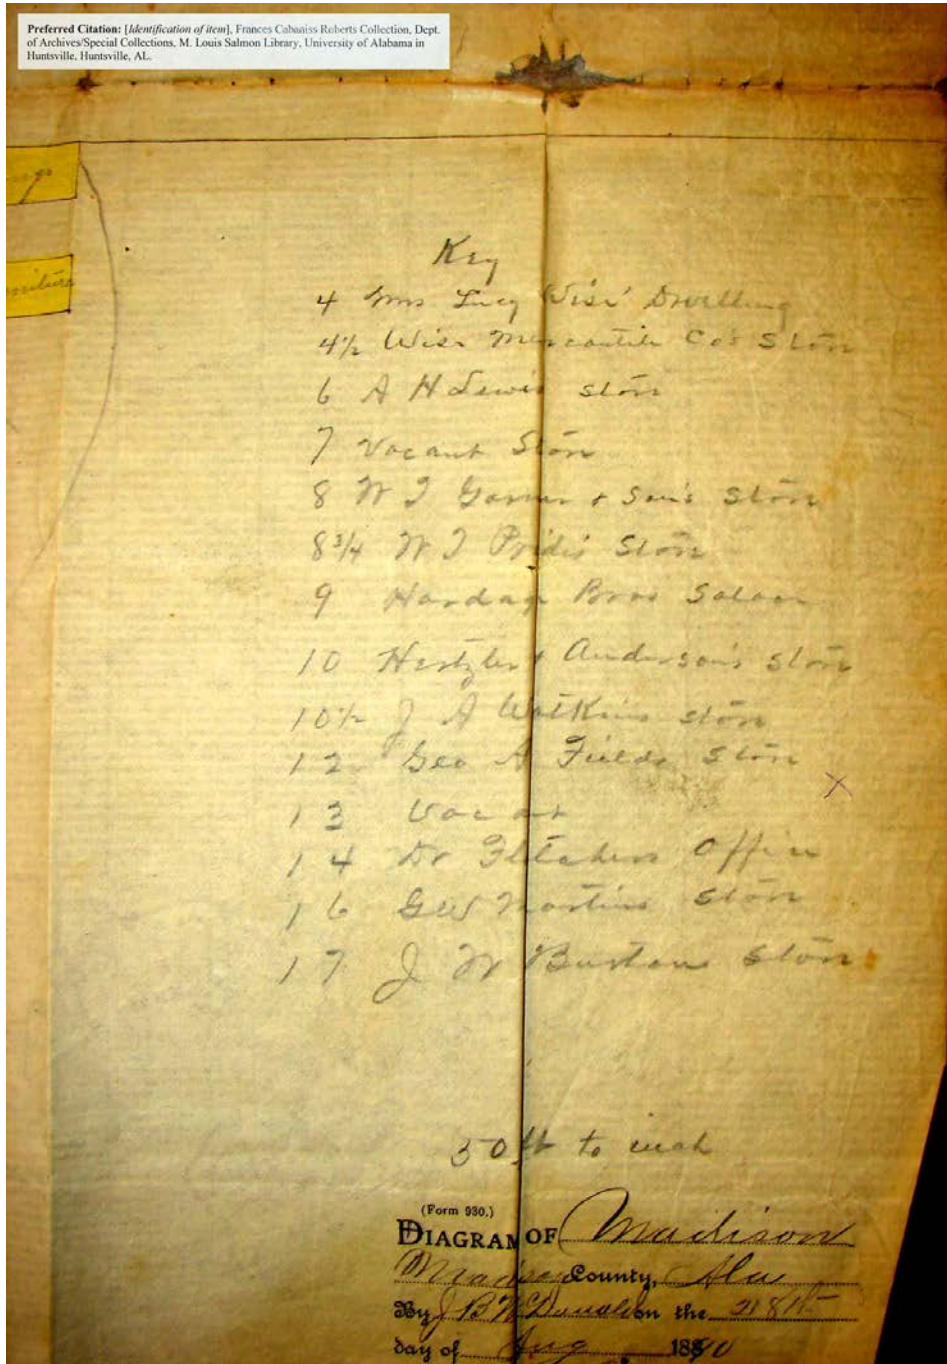 Preferred Citation: [Identification of item], Frances Cabaniss Roberts Collection, Dept.
of Archives/Special Collections, M. Louis Salmon Library, University of Alabama in
Huntsville, Huntsville, AL.
Key
4 Mrs Lucy Wise' Dwelling
4½ Wise Mercantile Co's Store
6 A H Lewis Store
7 Vacant Store
8 W T Garner & Son's Store
8¾ W T Pride's Store
9 Hardage Bros Saloon
10 Hertzler & Anderson's Store
10½ J A Watkins Store
12 Geo A Fields Store
13 Vacant
14 Dr Fletchers Office
16 GW Martins Store
17 J W Burtons Store
50 ft to inch
(Form 930.)
DIAGRAM OF Madison
Madison County, Ala
By J B McDonald on the 28th
day of Aug 1890